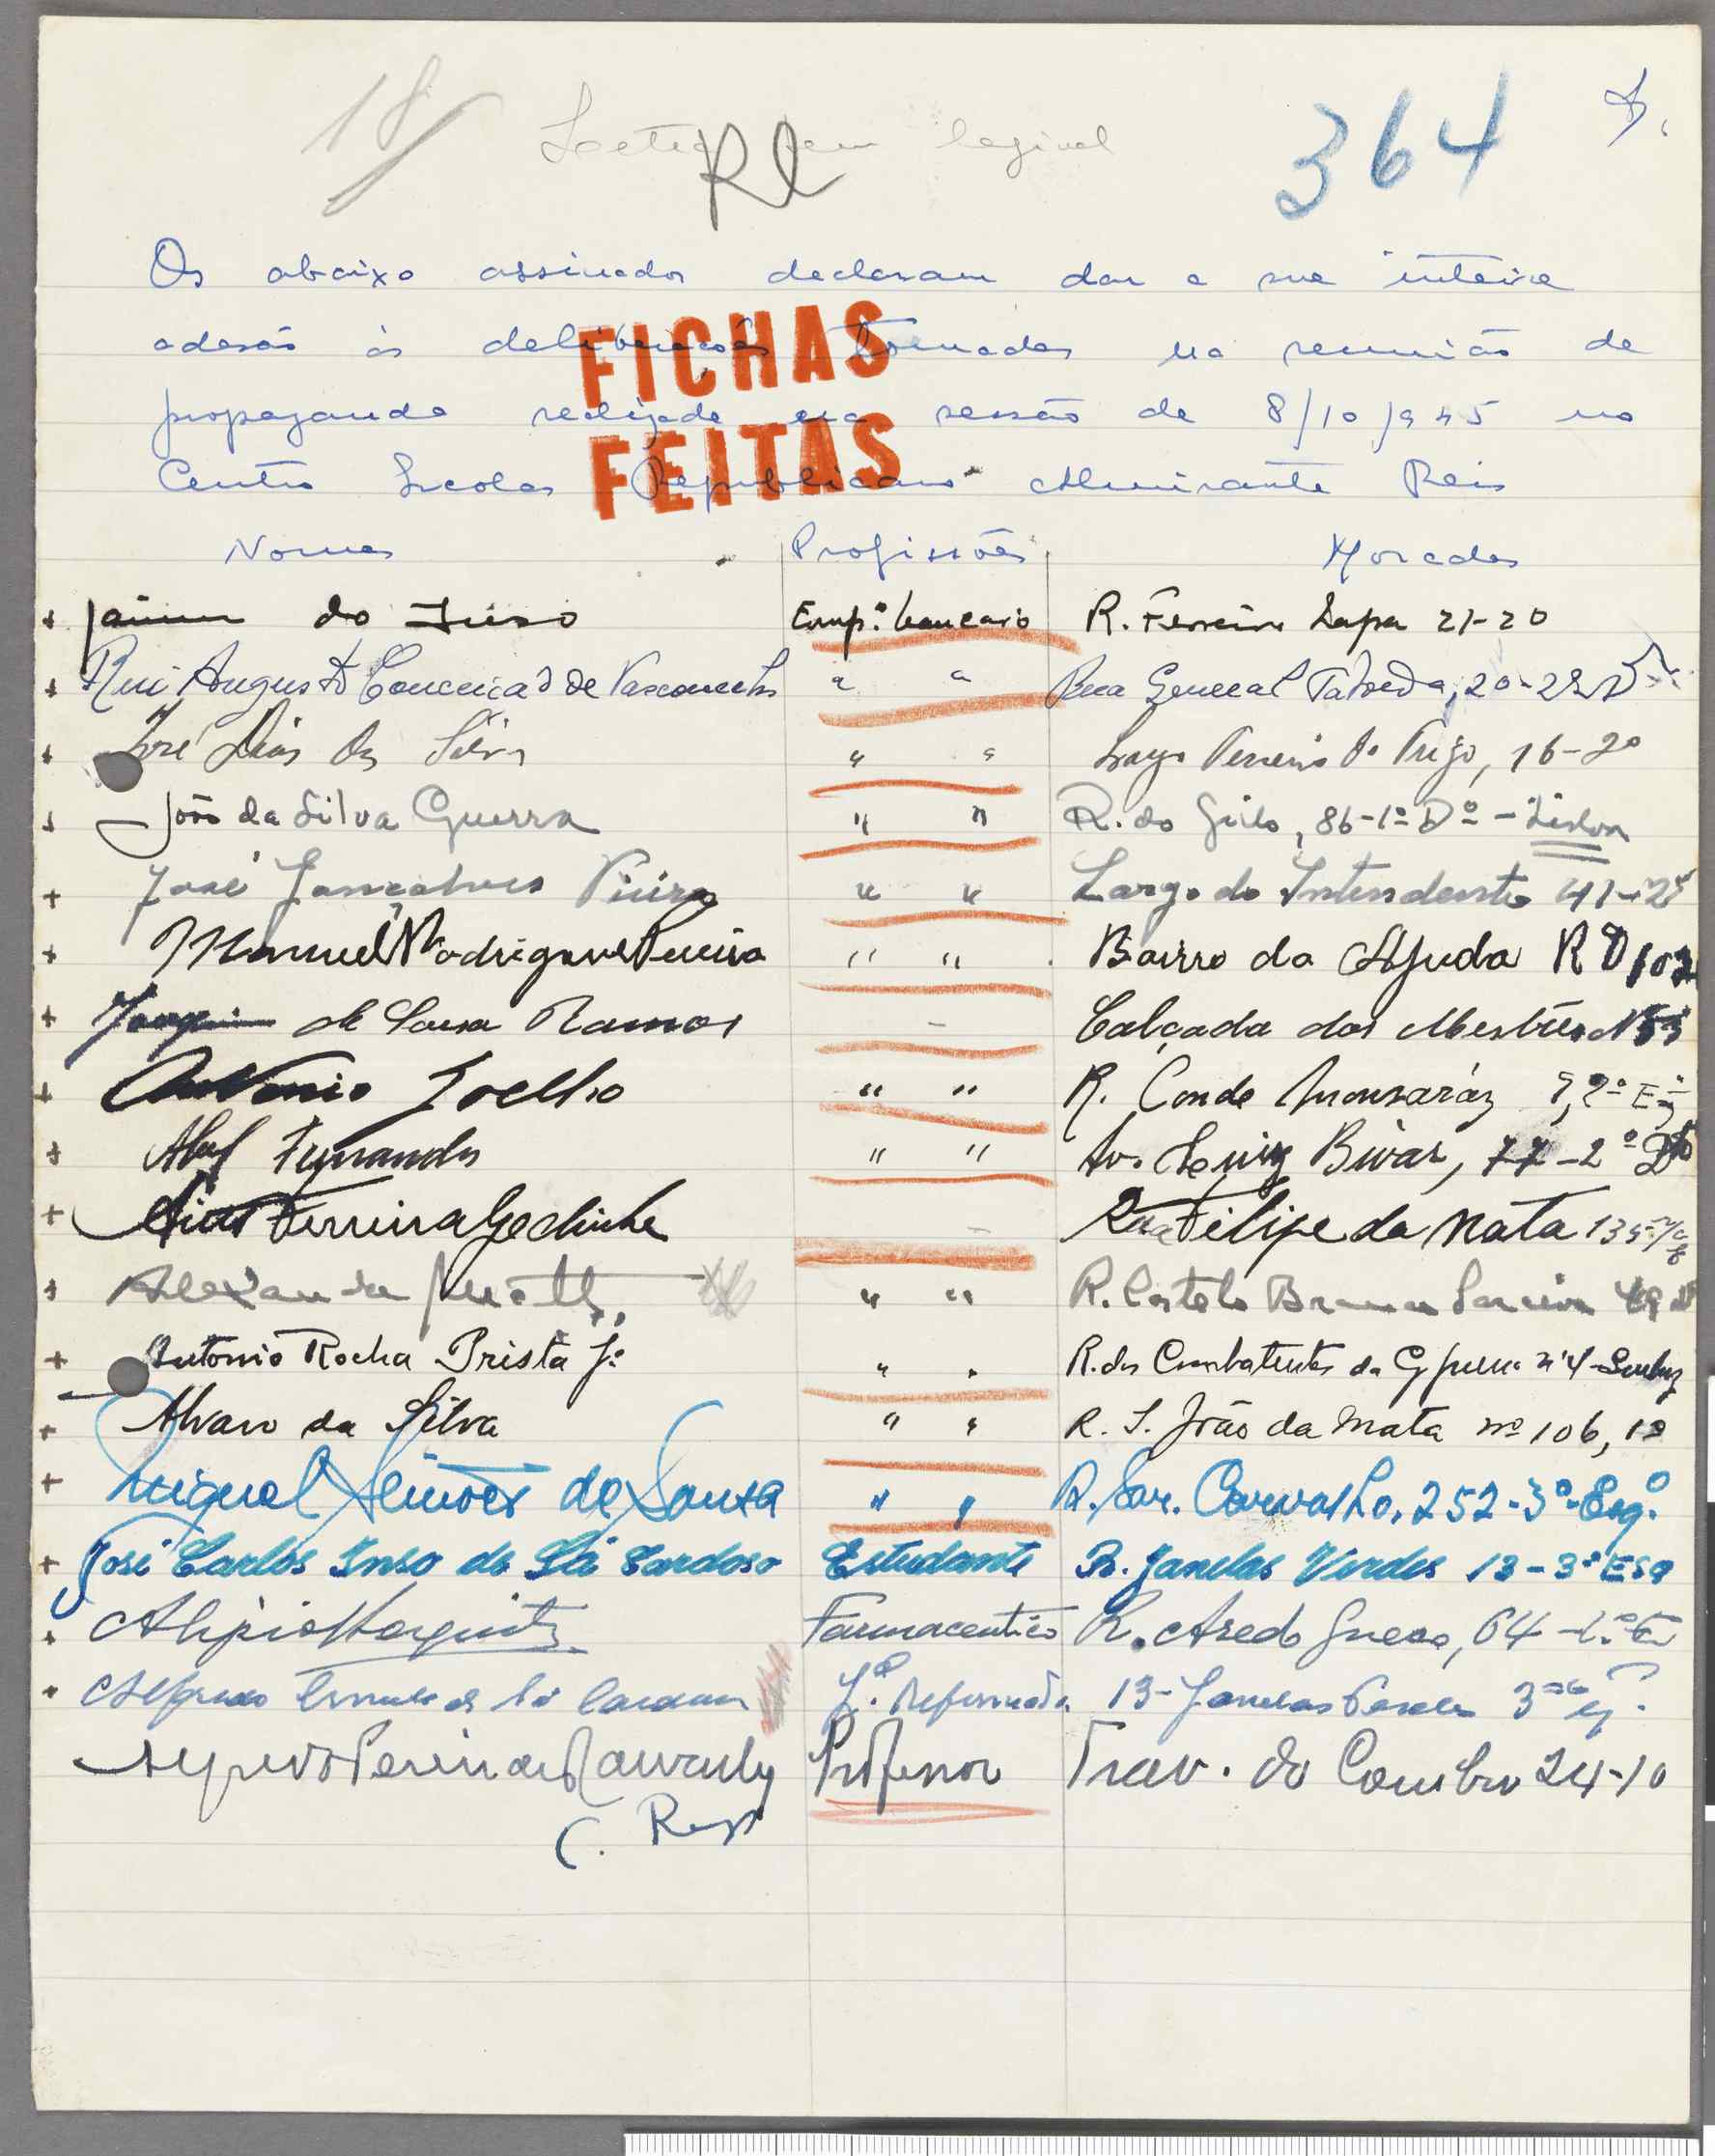 18
RL
legivel
364
Os abaixo assinados declaram dar a sua inteira
adesão às deliberações tomadas na reunião de
propaganda realizada na sessão de 8/10/945 no
Centro Escolar Republicano Almirante Reis
FICHAS
FEITAS
Nomes Profissões Moradas
do Emp.º bancario R. Ferreira Lapa 21-20
Rui Augusto Conceição de Vasconcelos " " Rua General Taborda, 20-
José Dias da Silva " " Largo Terreiro do Trigo, 16-2º
João da Silva Guerra " " R. do Grilo, 86-1º Dº - Lisboa
José Gonçalves Vieira " " Largo do Intendente 41-2º
Manuel Rodrigues Pereira " " Bairro da Ajuda R D 102
Joaquim de Sousa Ramos - Calçada dos Mestres
Antonio Coelho " " R. Conde Monsaráz
Abel Fernandes " " Av. Luiz Bivar, 77-2º Dto
Ferreira Godinho - Rua Filipe da Mata
Alexandre " " R. Castelo Branco Saraiva
Antonio Rocha Prista Jº " " R. dos Combatentes da G Guerra nº 4
Alvaro da Silva " " R. S. João da Mata nº 106, 1º
Miguel Simões de Sousa " " R. Sar. Carvalho, 252-3º-Esqº
José Carlos Inso de Sá Cardoso Estudante R. Janelas Verdes 13-3º Esq
Alipio Farmaceutico R. Azedo Gneco, 64
Alfredo Ernesto de Sá Cardoso Reformado 13-Janelas Verdes 3º
Alfredo Professor Trav. do Combro 24-10